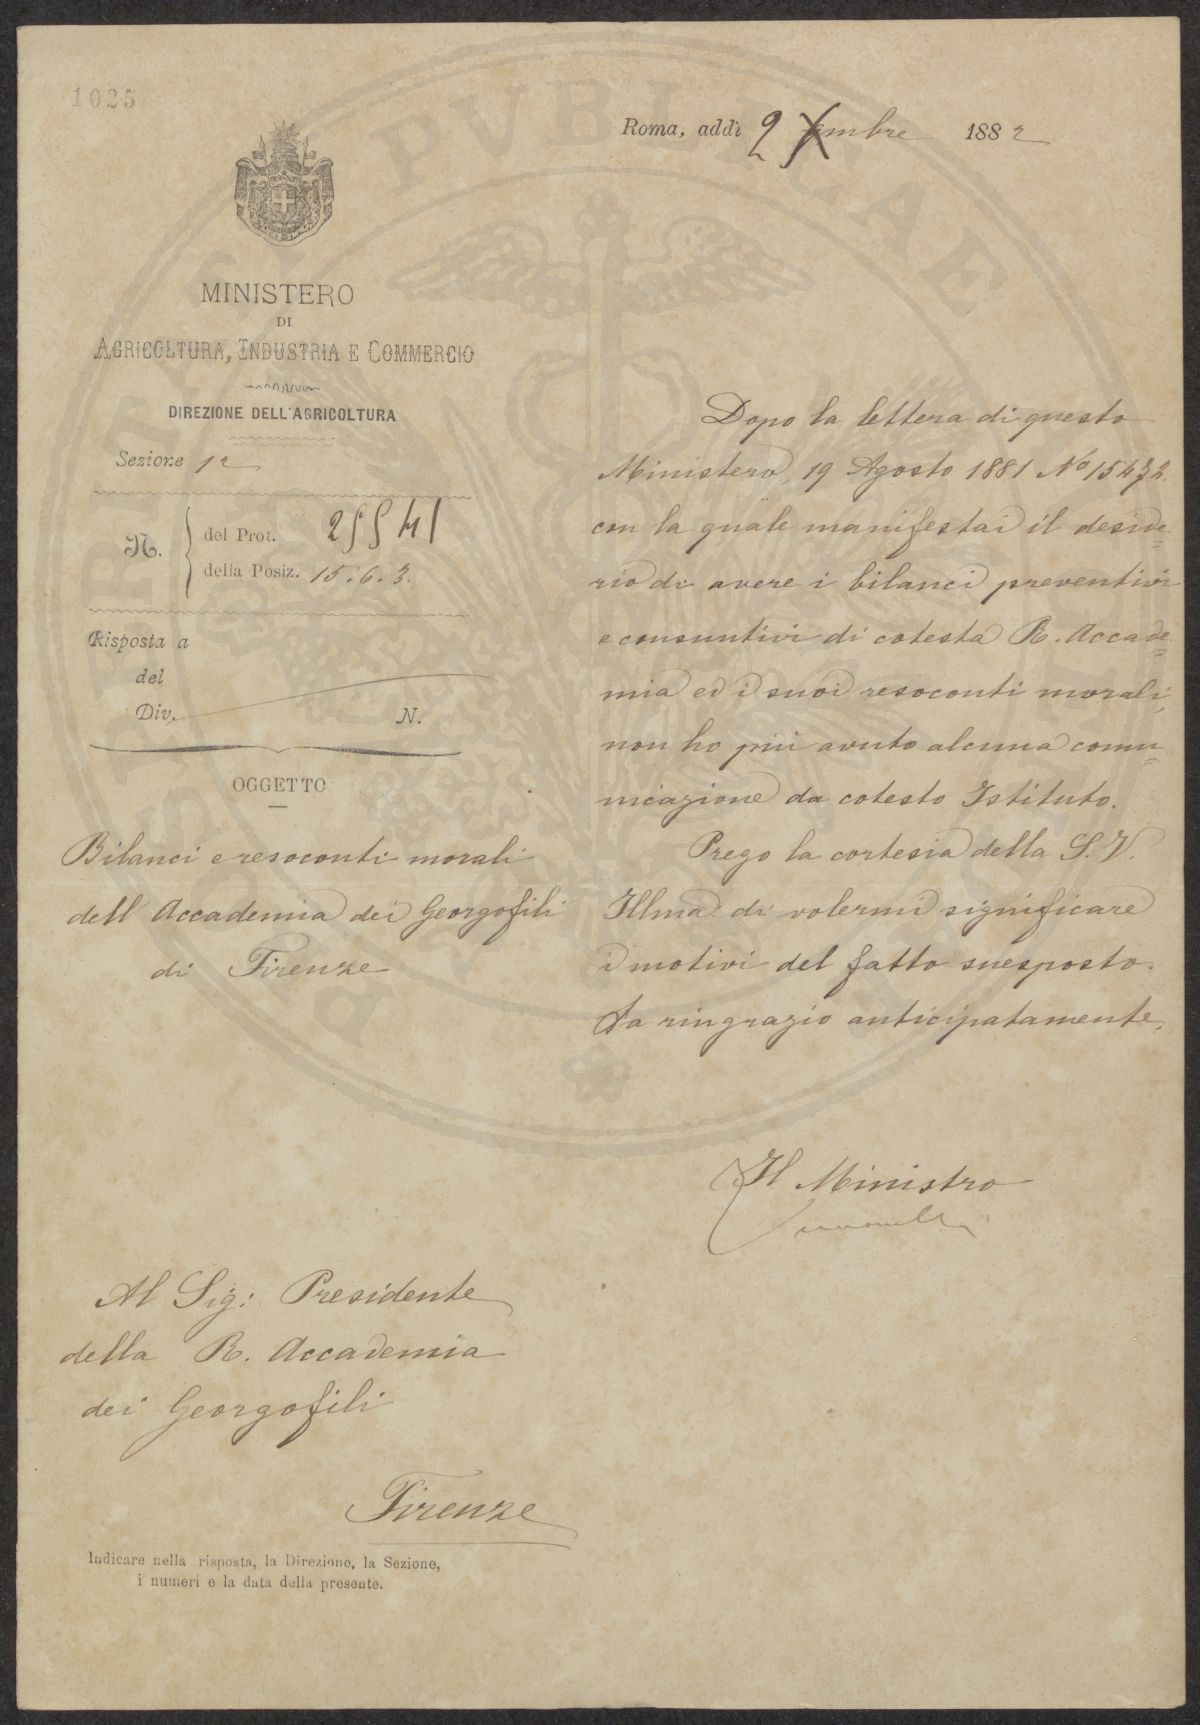 1025
Roma, addì 2 Xmbre 1882
MINISTERO
DI
AGRICOLTURA, INDUSTRIA E COMMERCIO
DIREZIONE DELL'AGRICOLTURA
Sezione 1ª
N.
del Prot. 25541
della Posiz. 15.6.3.
Risposta a
del
Div. N.
OGGETTO
Bilanci e resoconti morali
dell'Accademia dei Georgofili
di Firenze
Dopo la lettera di questo
Ministero, 19 Agosto 1881 No 15472
con la quale manifestai il deside=
rio di avere i bilanci preventivi
e consuntivi di cotesta R. Accade=
mia ed i suoi resoconti morali,
non ho più avuto alcuna comu=
nicazione da cotesto Istituto.
Prego la cortesia della S. V.
Illma di volermi significare
i motivi del fatto suesposto.
La ringrazio anticipatamente.
Il Ministro
Al Sig: Presidente
della R. Accademia
dei Georgofili
Firenze
Indicare nella risposta, la Direzione, la Sezione,
i numeri e la data della presente.